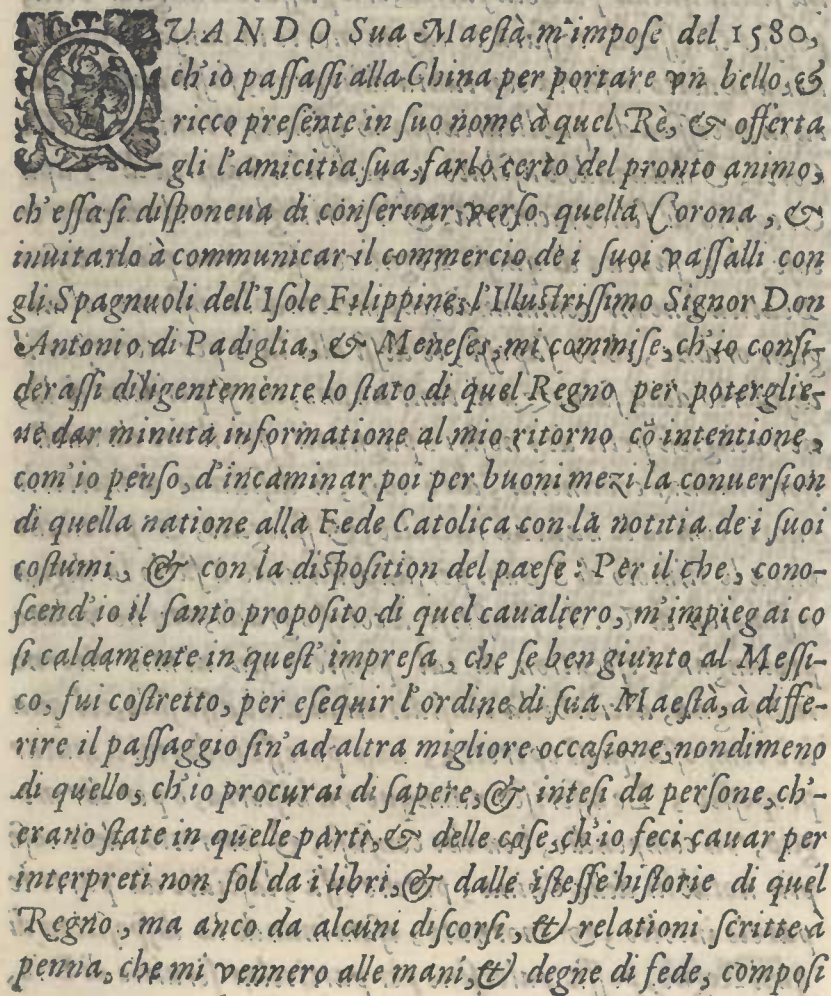 QVANDO Sua Maeſtà m'impoſe del 1580,
ch'io paſſaſſi alla China per portare vn bello, &
ricco preſente in ſuo nome à quel Rè, & offerta
gli l'amicitia ſua, farlo certo del pronto animo,
ch'eſſa ſi diſponeua di conſeruar verſo quella Corona, &
inuitarlo à communicar il commercio de i ſuoi vaſſalli con
gli Spagnuoli dell'Iſole Filippine, l'Illuſtriſſimo Signor Don
Antonio di Padiglia, & Meneſes, mi commiſe, ch'io conſi-
deraſſi diligentemente lo ſtato di quel Regno per poterglie-
ne dar minuta informatione al mio ritorno cõ intentione,
com'io penſo, d'incaminar poi per buoni mezi la conuerſion
di quella natione alla Fede Catolica con la notitia de i ſuoi
coſtumi, & con la diſpoſition del paeſe: Per il che, cono-
ſcend'io il ſanto propoſito di quel caualiero, m'impiegai co
ſi caldamente in queſt'impreſa, che ſe ben giunto al Meſſi-
co, fui coſtretto, per eſequir l'ordine di ſua Maeſtà, à diffe-
rire il paſſaggio ſin'ad altra migliore occaſione, nondimeno
di quello, ch'io procurai di ſapere, & inteſi da perſone, ch'-
erano ſtate in quelle parti, & delle coſe, ch'io feci cauar per
interpreti non ſol da i libri, & dalle iſteſſe hiſtorie di quel
Regno, ma anco da alcuni diſcorſi, & relationi ſcritte à
penna, che mi vennero alle mani, & degne di fede, compoſi